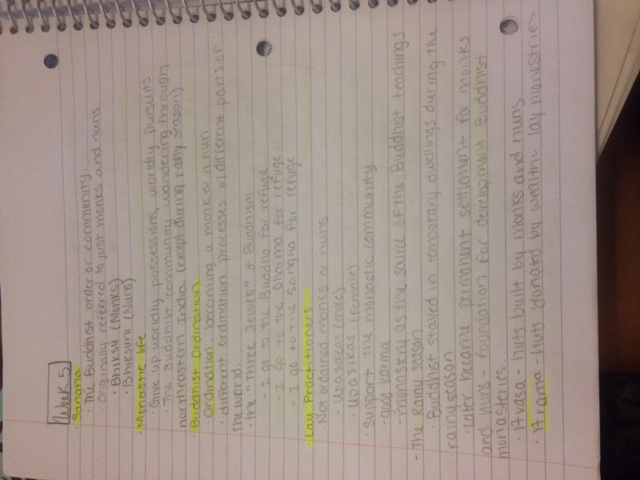 Week 5
Sangha
· The Buddhist order or community.
originally referred to just monks and nuns
· Bhiksu (Monks)
· Bhiksuni (Nuns)
· Monastic life
· Give up worldly possessions, worldly pursuits
· The Buddhist community wandering through
northeastern India (except during rainy season)
· Buddhist Ordination
Ordination: becoming a monk or a nun
· different ordination processes in different parts of
the world.
· the "Three Jewels" of Buddhism
- I go to the Buddha for refuge
- I go to the Dharma for refuge
- I go to the Sangha for refuge
· Lay Practitioners
· Not ordained monks or nuns
· Upasakas (male)
· Upasikas (female)
· Support the monastic community
- good karma
- monastery as the source of the Buddhist teachings
- The Rainy season
· Buddhist stayed in temporary dwellings during the
rainy season
· Later became permanent settlement for monks
and nuns - foundation for development Buddhist
monasteries
· Avasa - huts built by monks and nuns
· Arama - huts donated by wealthy lay monestries